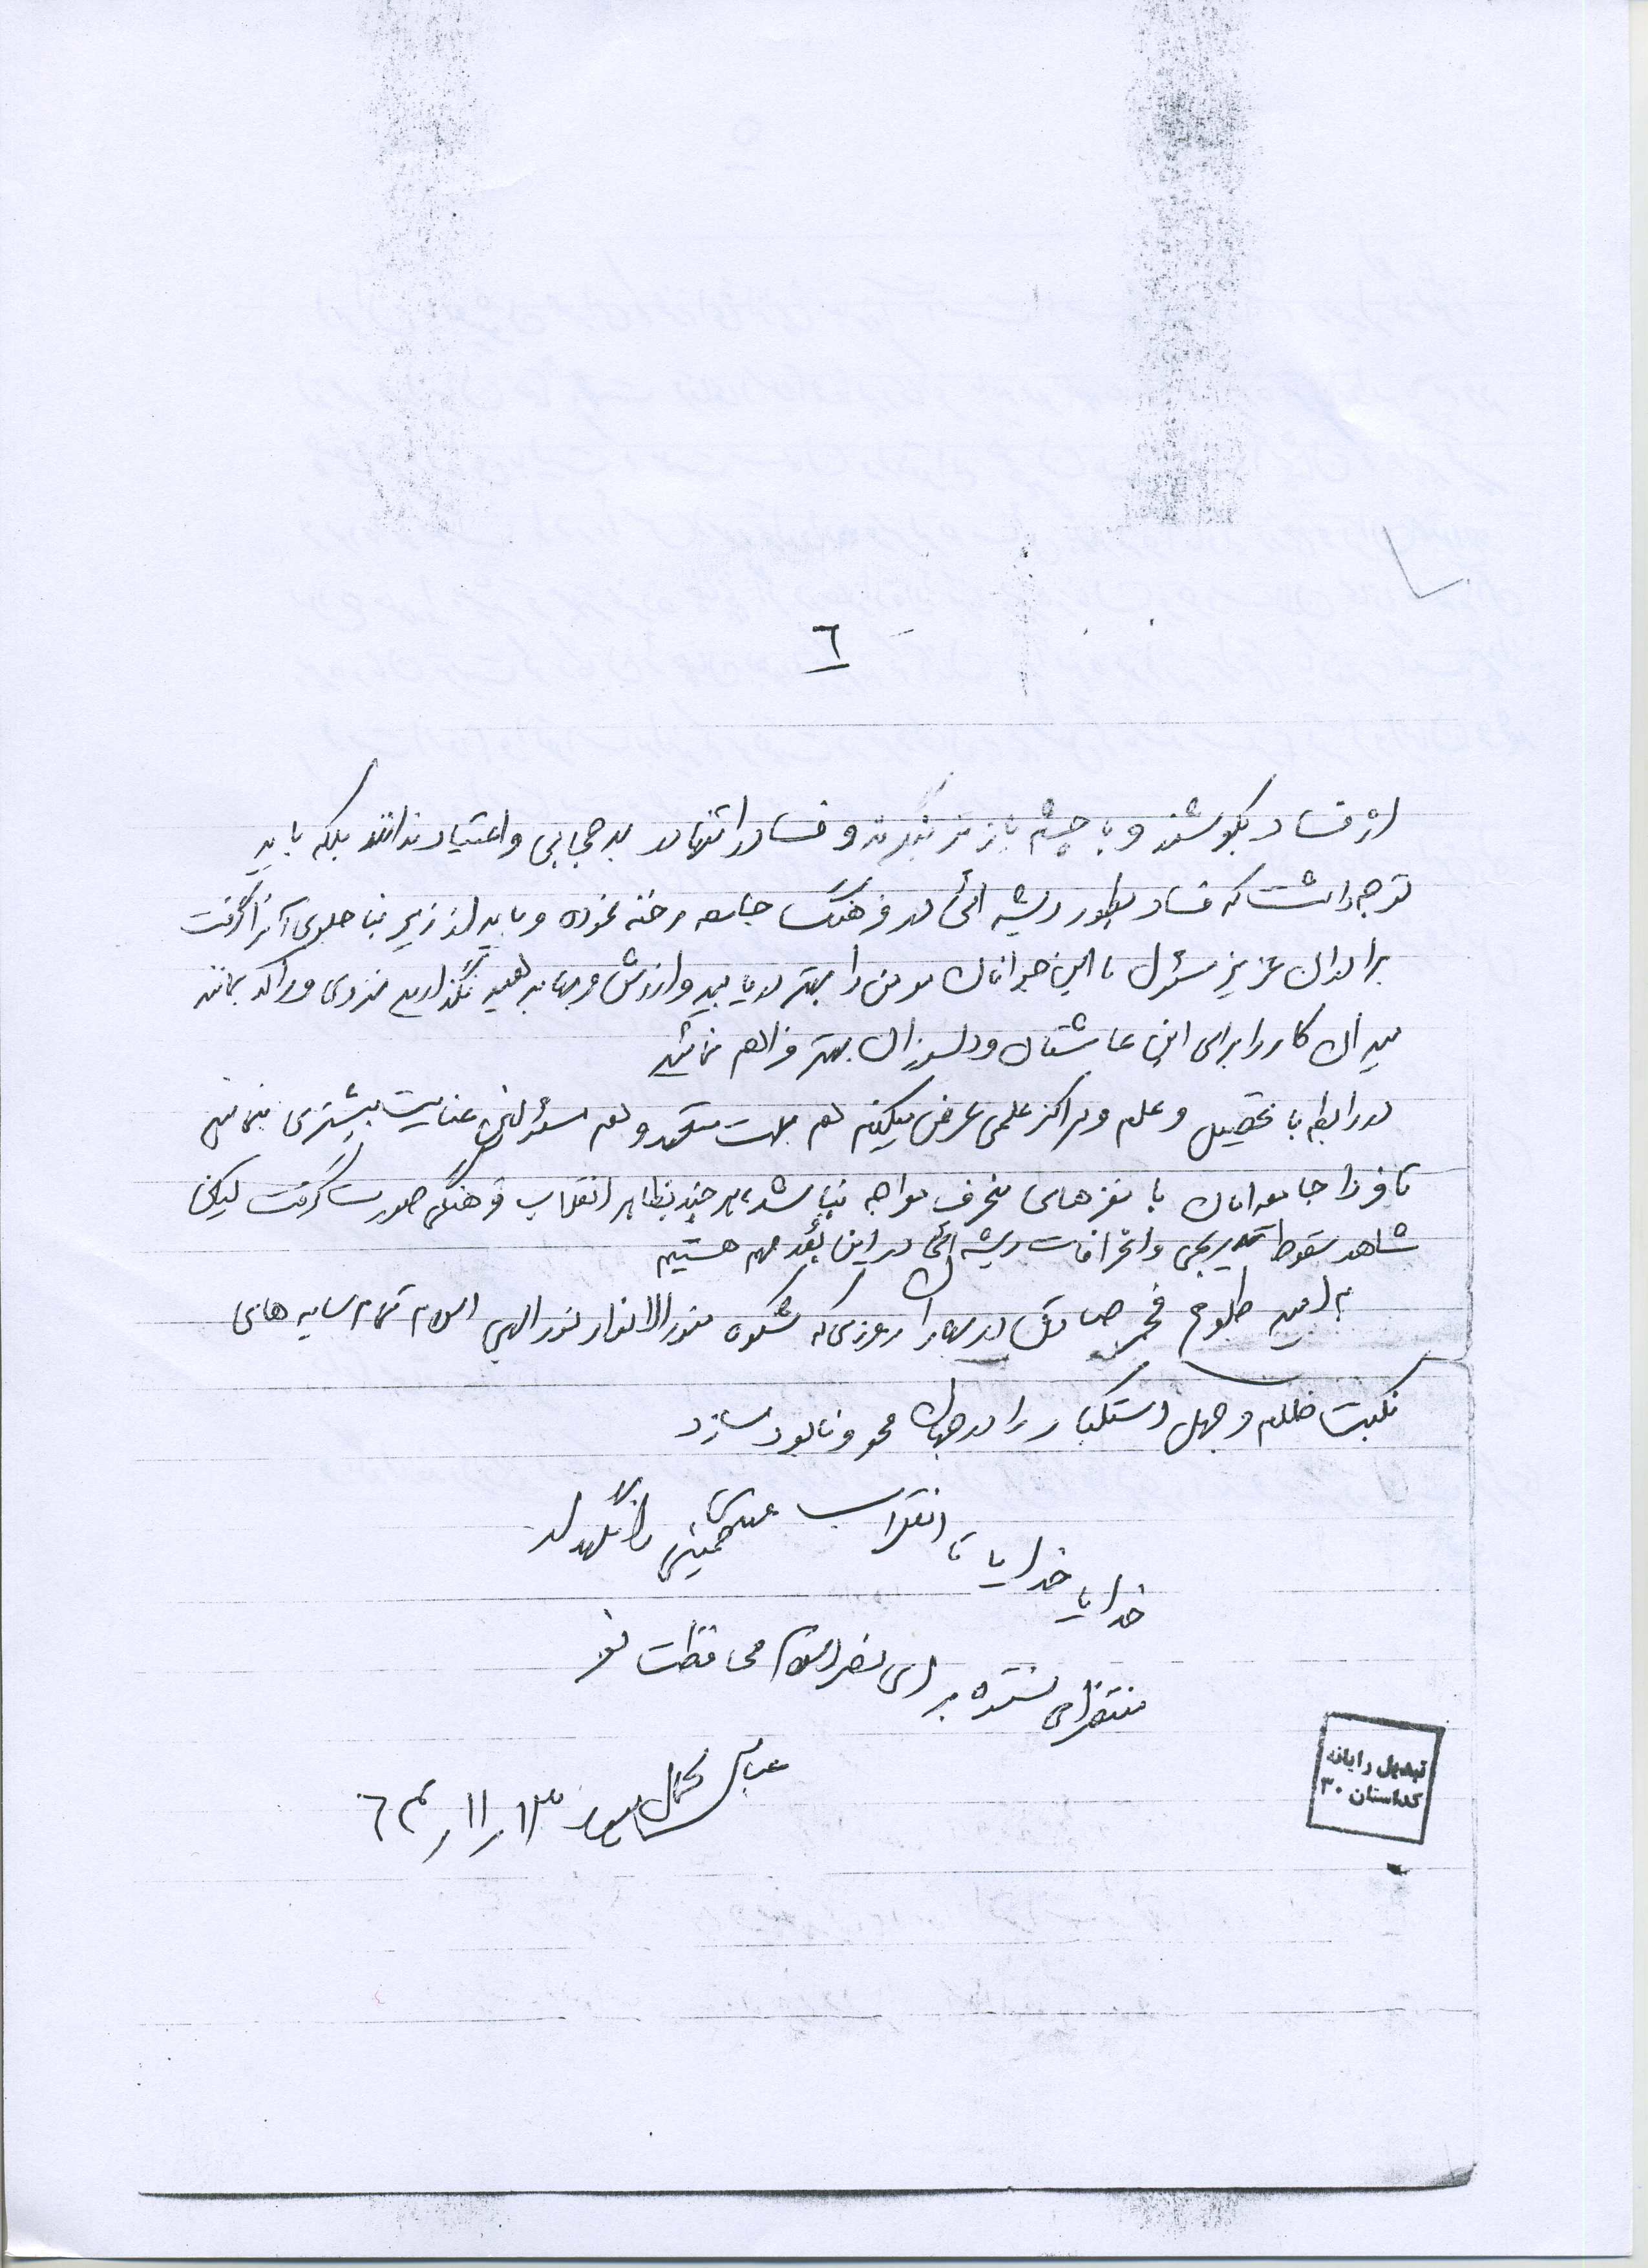 ٦
از فساد بکوشند و با چشم باز تر بنگرند و فساد را تنها در بدحجابی و اعتیاد ندانند بلکه باید
توجه داشت که فساد بطور ریشه ائی در فرهنگ جامعه رخنه نموده و باید از زیر بنا جلوی آنرا گرفت
برادران عزیز مسئول ما این جوانان مومن را بهتر دریابید و ارزش و بها بدهید نگذارید منزوی و راکد بمانند
میدان کار را برای این عاشقان و دلسوزان بهتر فراهم نمائید
در رابطه با تحصیل و علم و مراکز علمی عرض میکنم هم ملت متعهد و هم مسئولین عنایت بیشتری بنمایند
تا فردا جامعه امان با مغزهای منحرف مواجه نباشد، هر چند بظاهر انقلاب فرهنگی صورت گرفت لیکن
شاهد سقوط تدریجی و انحرافات ریشه ائی در این بُعد مهم هستیم
به امید طلوع فجر صادق در بهاران روزی که شکوه منور الانوار نور الهی اسلام تمام سایه های
نکبت ظلم و جهل و استکبار را در جهان محو و نابود سازد
خدایا خدایا تا انقلاب مهدی خمینی را نگهدار
منتظرامی نستوه برای نصر اسلام محافظت نمو
عباس ١٣ ر ١١ ر ٦٤
تبدیل رایانه
کداستان ٣٠